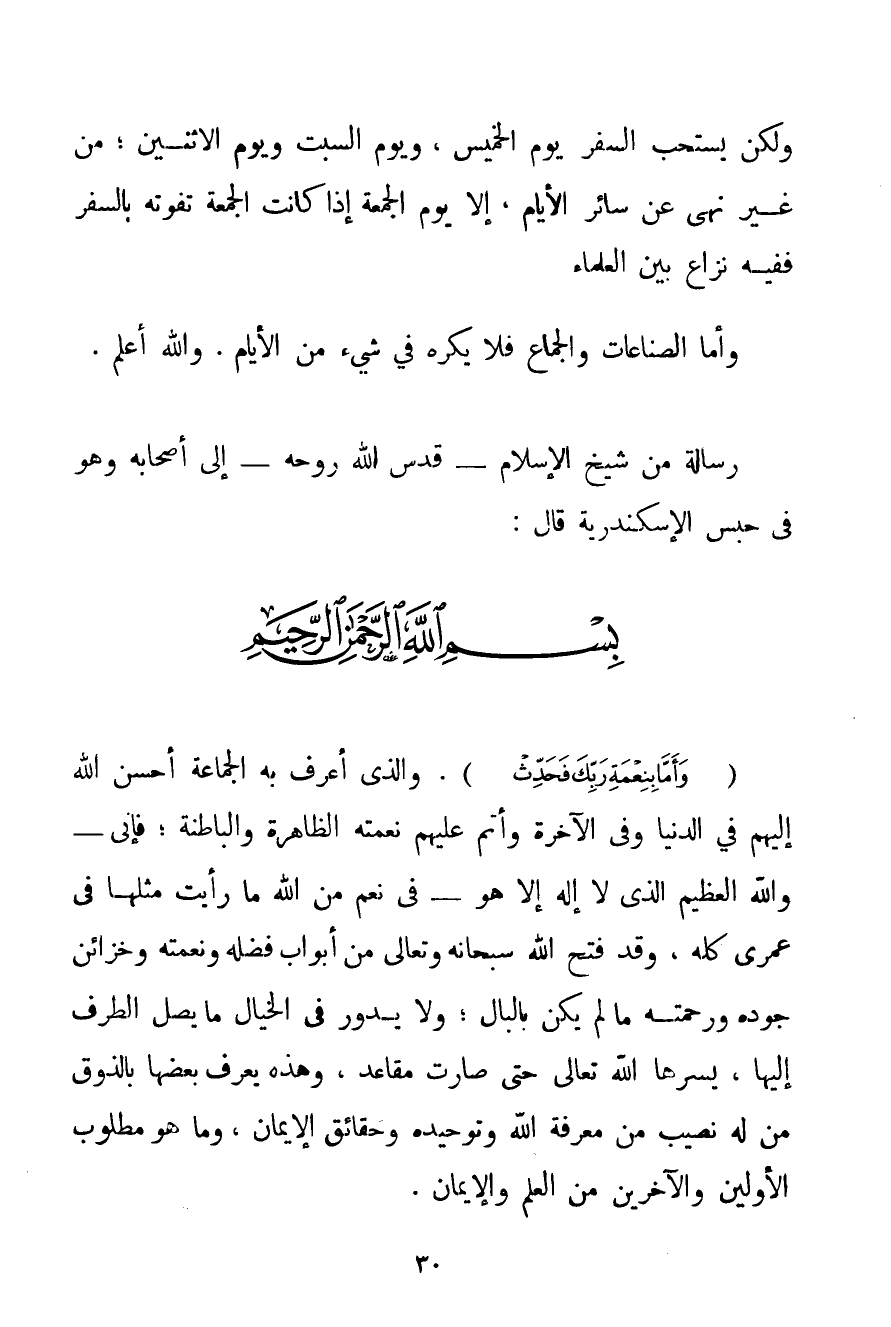 ولكن يستحب السفر يوم الخميس ، ويوم السبت ويوم الاثنــين ؛ من
غــير نهى عن سائر الأيام ، إلا يوم الجمعة إذا كانت الجمعة تفوته بالسفر
ففيــه نزاع بين العلماء
وأما الصناعات والجماع فلا يكره في شيء من الأيام . والله أعلم .
رسالة من شيخ الإسلام — قدس الله روحه — إلى أصحابه وهو
فى حبس الإسكندرية قال :
بِسْمِ ٱللَّهِ ٱلرَّحْمَٰنِ ٱلرَّحِيمِ
( وَأَمَّا بِنِعْمَةِ رَبِّكَ فَحَدِّثْ ) . والذى أعرف به الجماعة أحسن الله
إليهم في الدنيا وفى الآخرة وأتم عليهم نعمته الظاهرة والباطنة ؛ فإنى —
والله العظيم الذى لا إله إلا هو — فى نعم من الله ما رأيت مثلهــا فى
عمرى كله ، وقد فتح الله سبحانه وتعالى من أبواب فضله ونعمته وخزائن
جوده ورحمتــه ما لم يكن بالبال ؛ ولا يــدور فى الخيال ما يصل الطرف
إليها ، يسرها الله تعالى حتى صارت مقاعد ، وهذه يعرف بعضها بالذوق
من له نصيب من معرفة الله وتوحيده وحقائق الإيمان ، وما هو مطلوب
الأولين والآخرين من العلم والإيمان .
٣٠